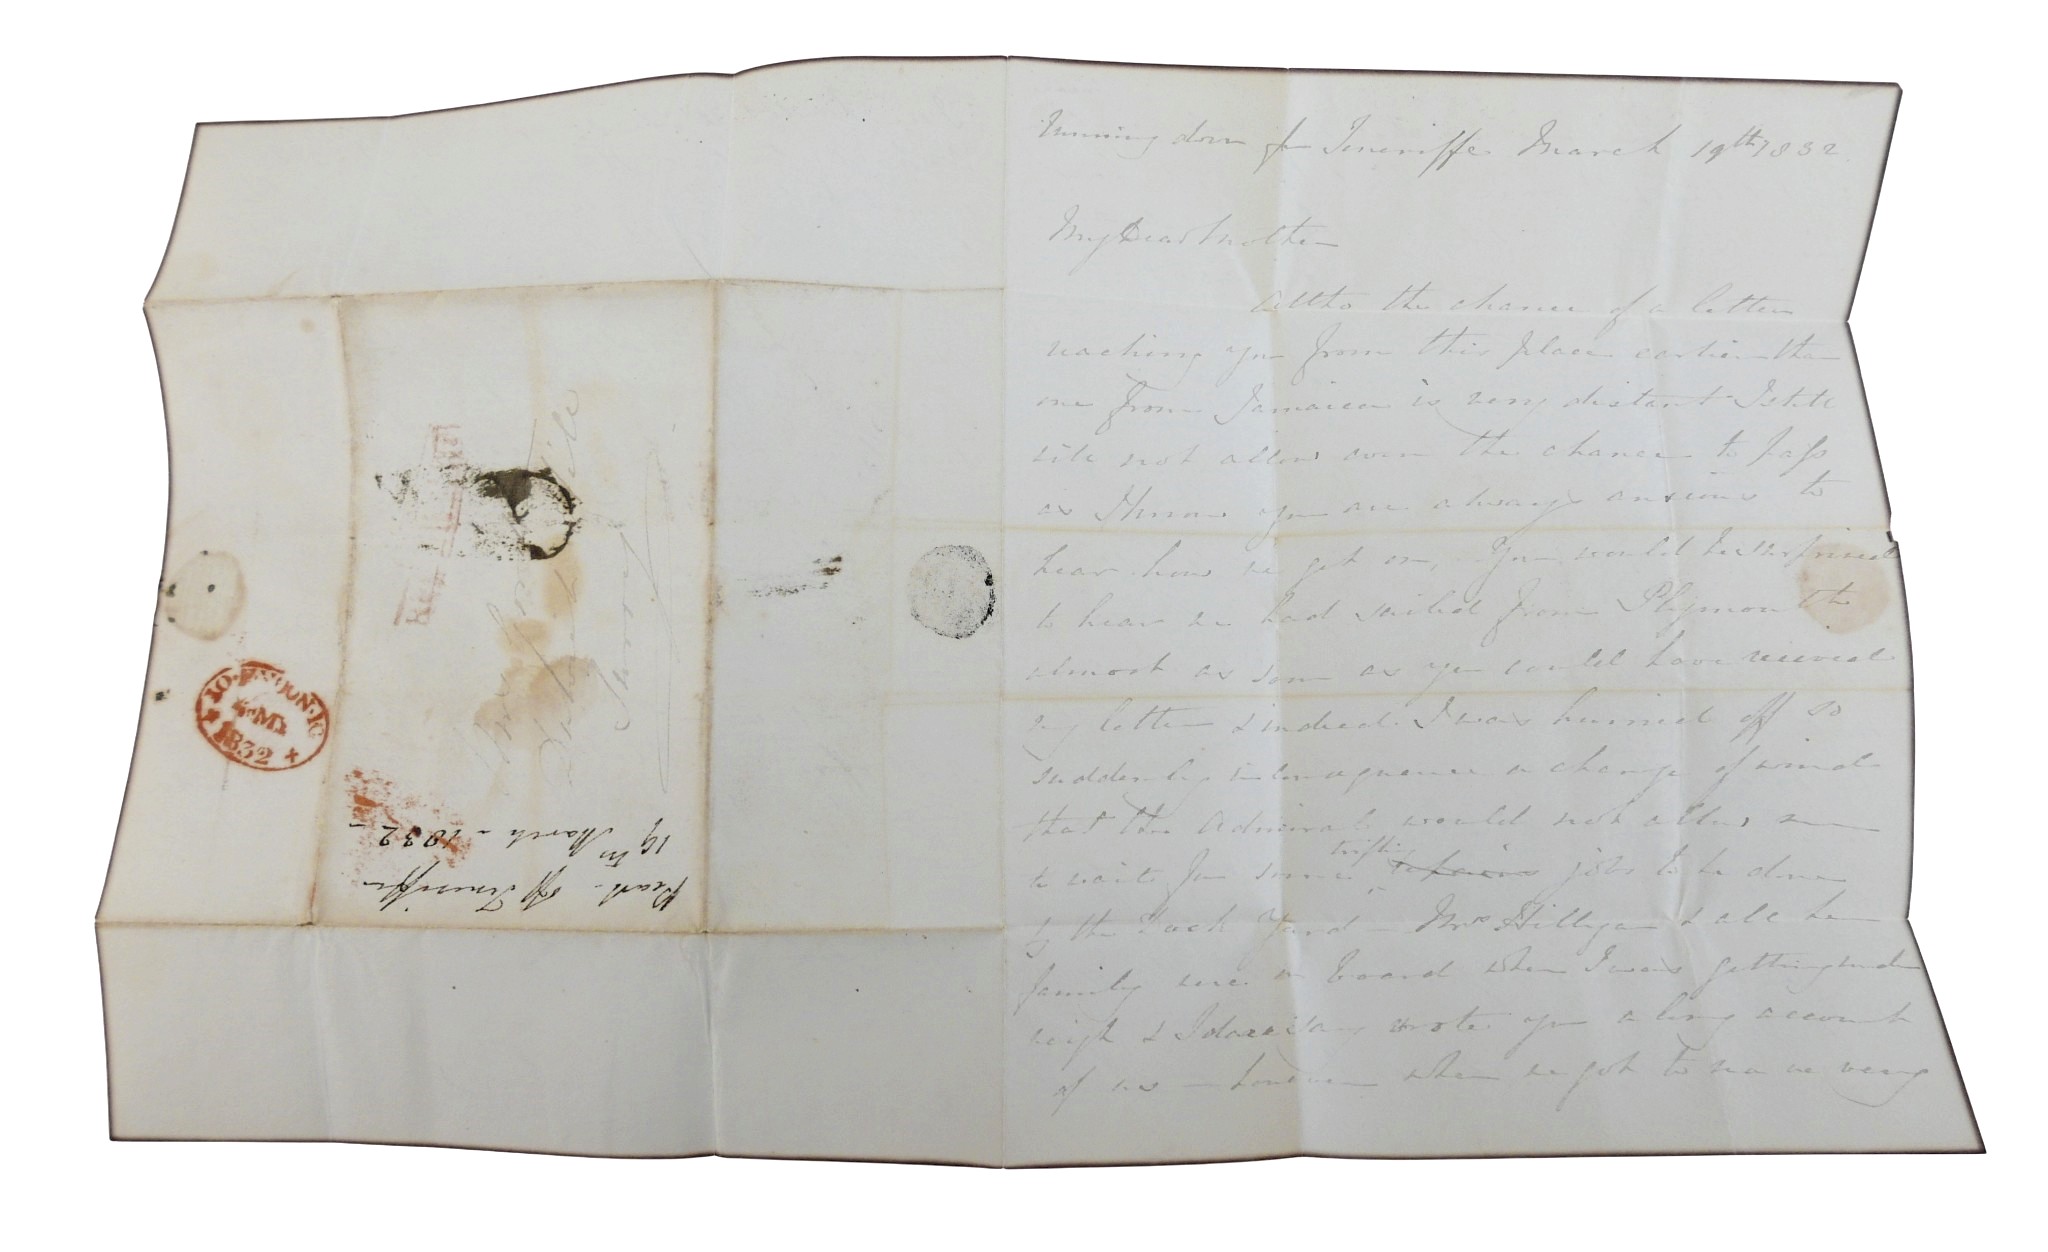 Running down for Teneriffe March 19th 1832
My Dear Mother
Altho the chance of a letter
reaching you from this place earlier than
one from Jamaica is very distant I still
will not allow even the chance to pass
as I know you are always anxious to
hear how we get on, You would be surprised
to hear we had sailed from Plymouth
almost as soon as you could have received
my letter & indeed I was hurried off so
suddenly in consequence a change of wind
that the Admiral would not allow me
to wait for some trifling repairs jobs to be done
by the Dock Yard - Mrs Hilligan & all her
family were on board when I was getting under
weigh & I dare say wrote you a long account
of us - however when we got to sea we very
Pearl - off Teneriffe
19th March - 1832 -
10·F·NOON·10
4·MY
1832